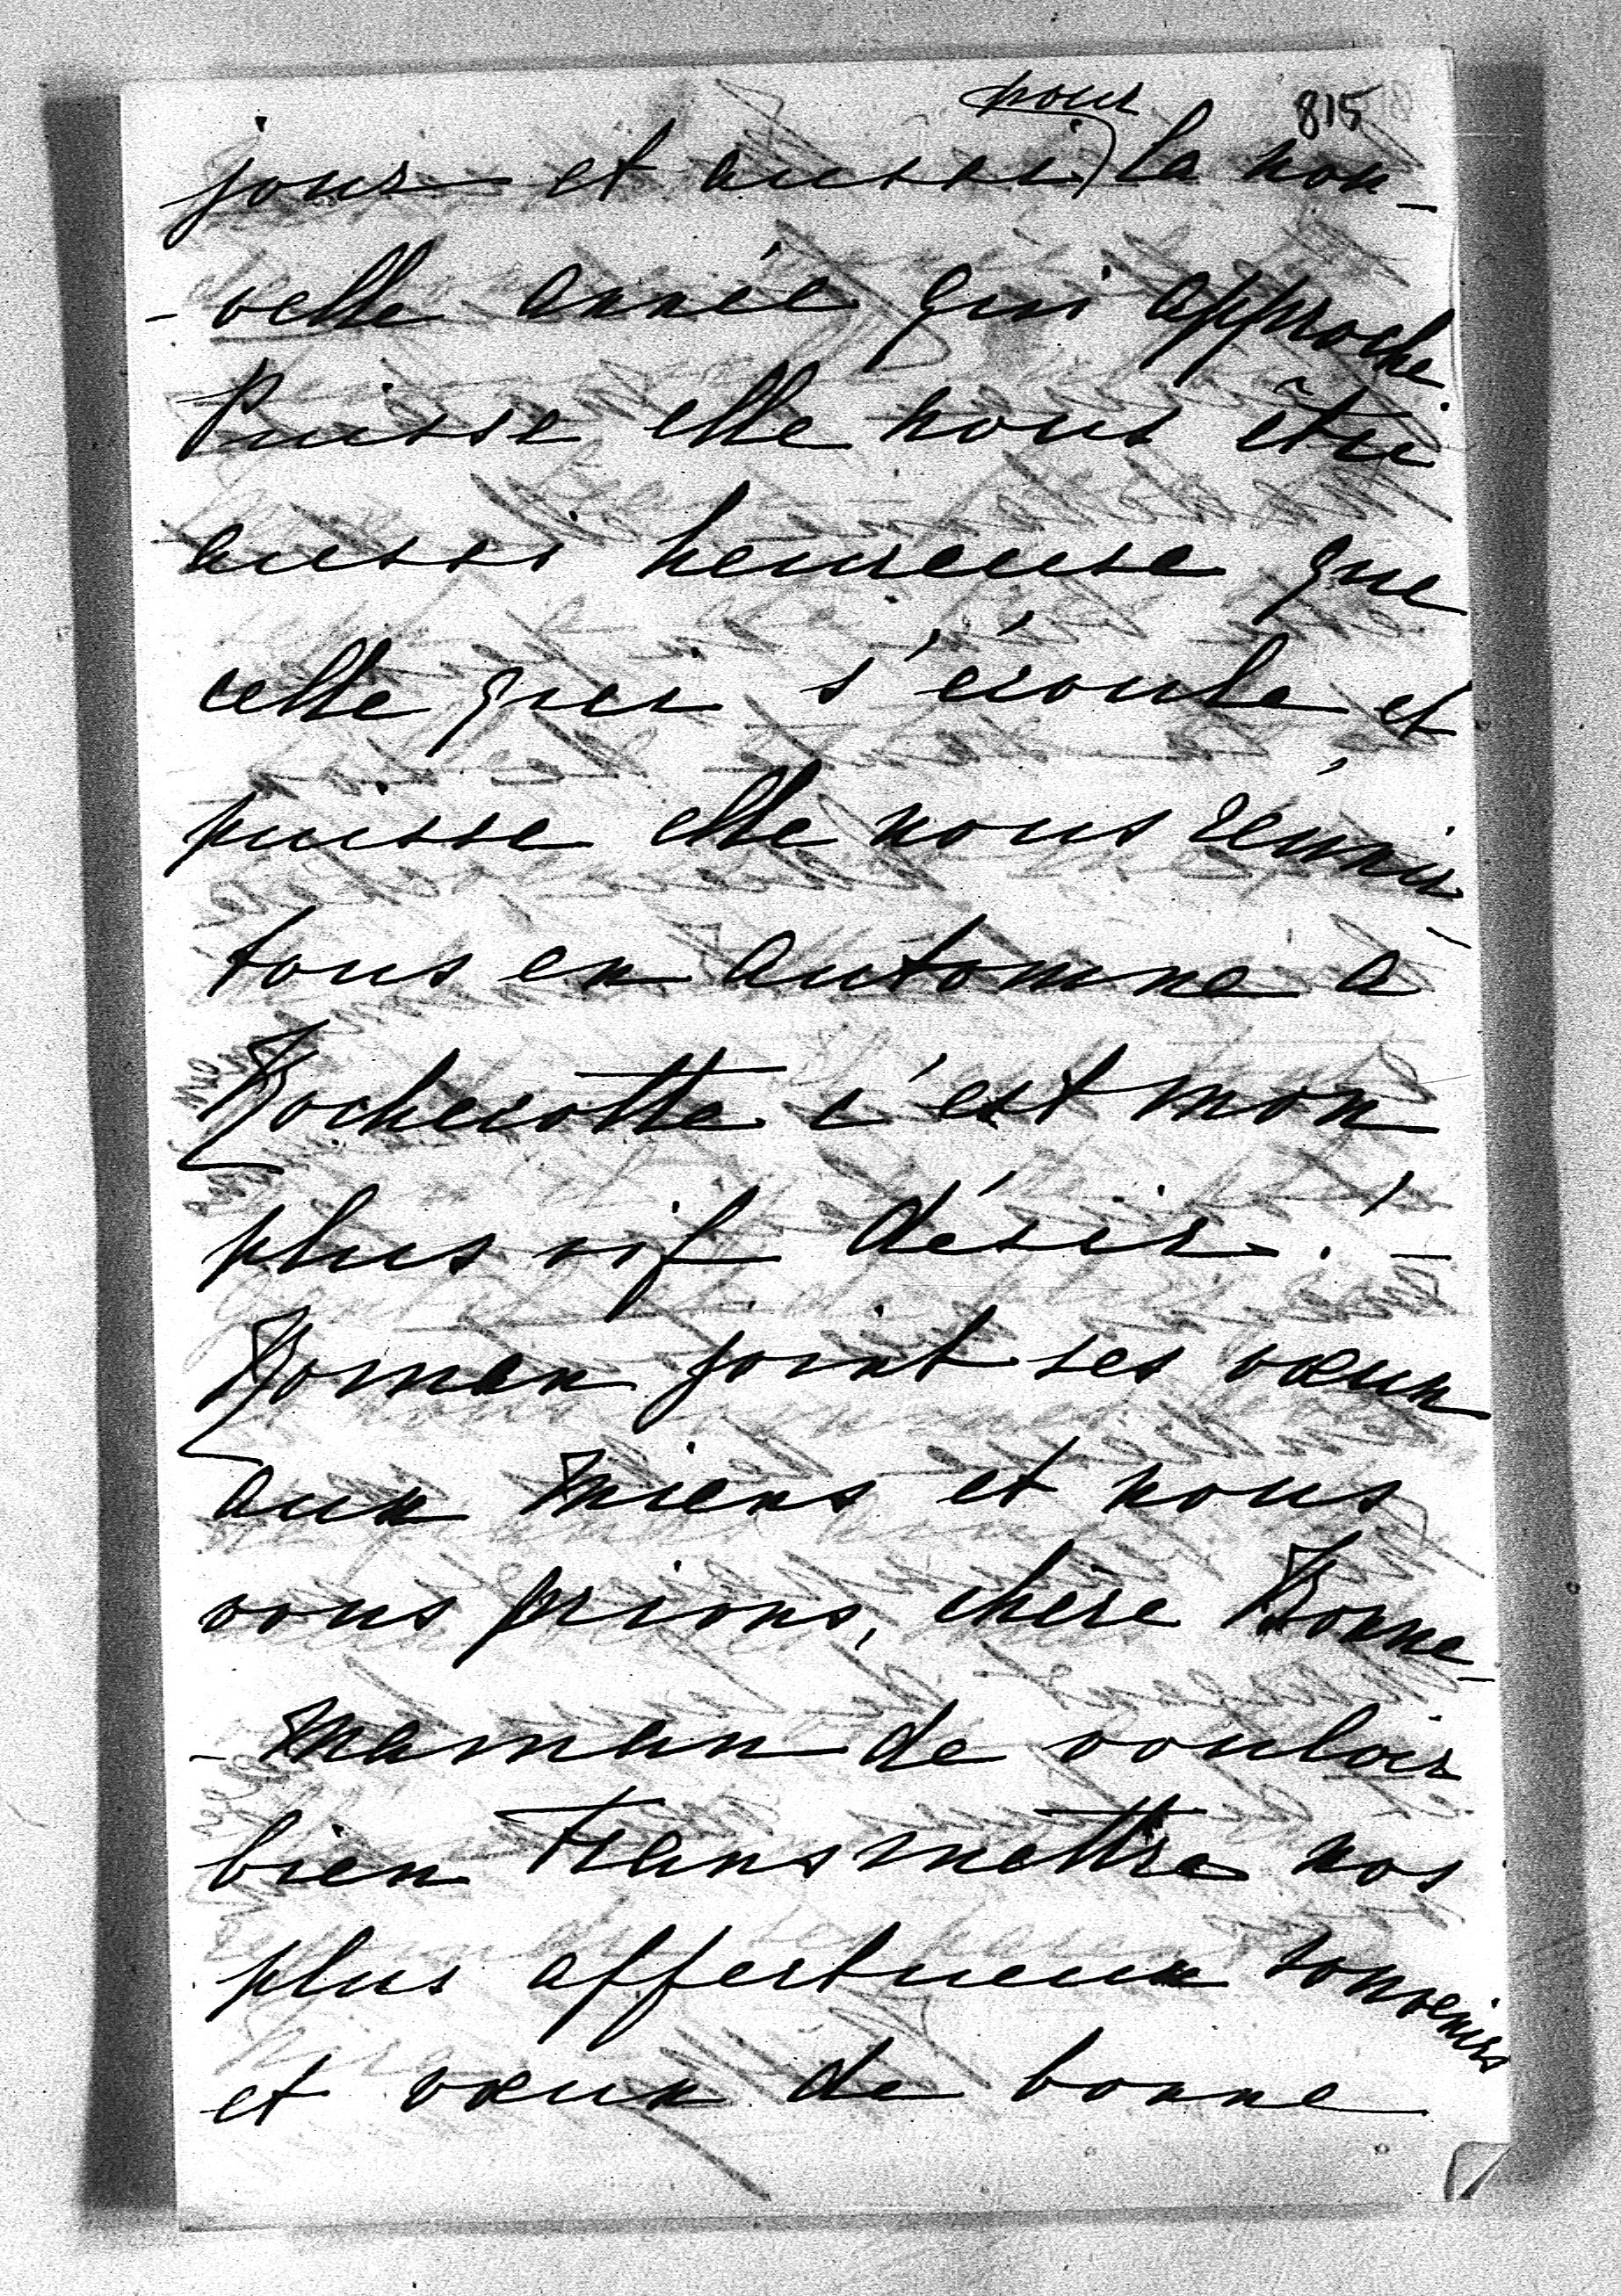 815
jour et aussi pour la nou-
-velle année qui approche
Puisse elle nous être
aussi heureuse que
celle qui s'écoule et
puisse elle nous réunir
tous en automne a
Rochecotte c'est mon
plus vif désir! -
Roman joint ses vœux
aux miens et nous
vous prions, chère Bonne-
-maman de vouloir
bien transmettre nos
plus affectueux souvenirs
et vœux de bonne